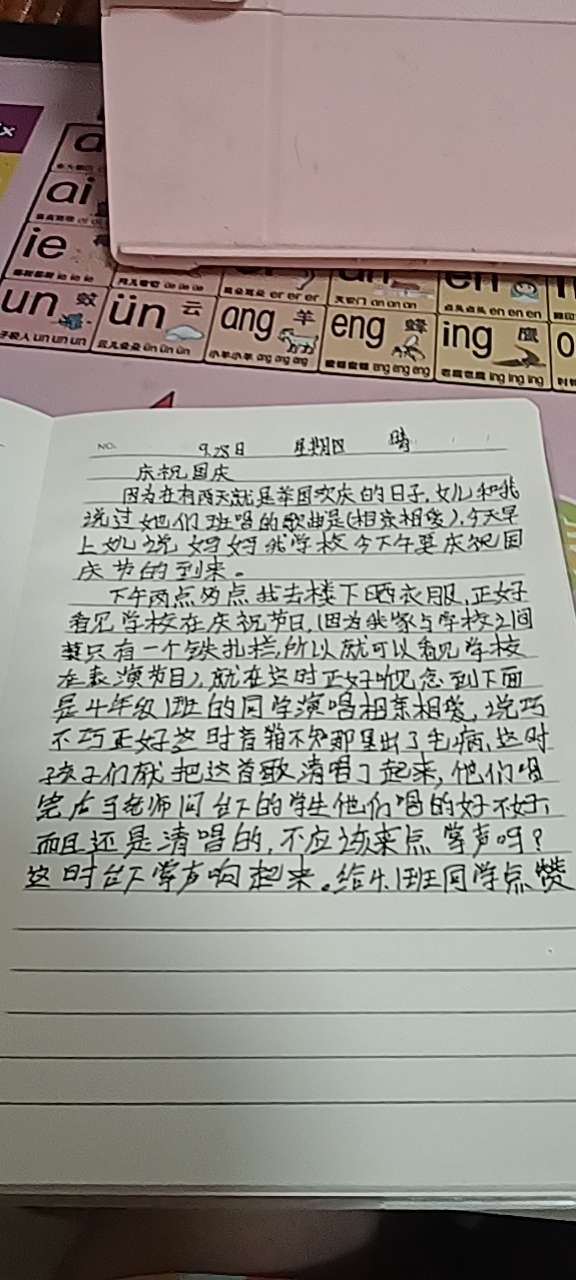 ai
ie
en
un 蚊
ün 云
ang 羊
eng 蜂
ing 鹰
un un un
ün ün ün
小羊小羊 ang ang ang
eng eng eng
ing ing ing
NO. 9.28日 星期四 晴
庆祝国庆
因为在有两天就是举国欢庆的日子,女儿和我
说过她们班唱的歌曲是(相亲相爱),今天早
上女儿说妈妈我学校今下午要庆祝国
庆节的到来。
下午两点的点我去楼下晒衣服,正好
看见学校在庆祝节日,(因为我家与学校之间
只有一个铁扎栏,所以就可以看见学校
在表演节目),就在这时正好听见念到下面
是4年级1班的同学演唱相亲相爱,说巧
不巧正好这时音箱不知那里出了毛病,这时
孩子们就把这首歌清唱了起来,他们唱
完后老师问台下的学生他们唱的好不好,
而且还是清唱的,不应该来点掌声吗?
这时台下掌声响起来。给4.1班同学点赞